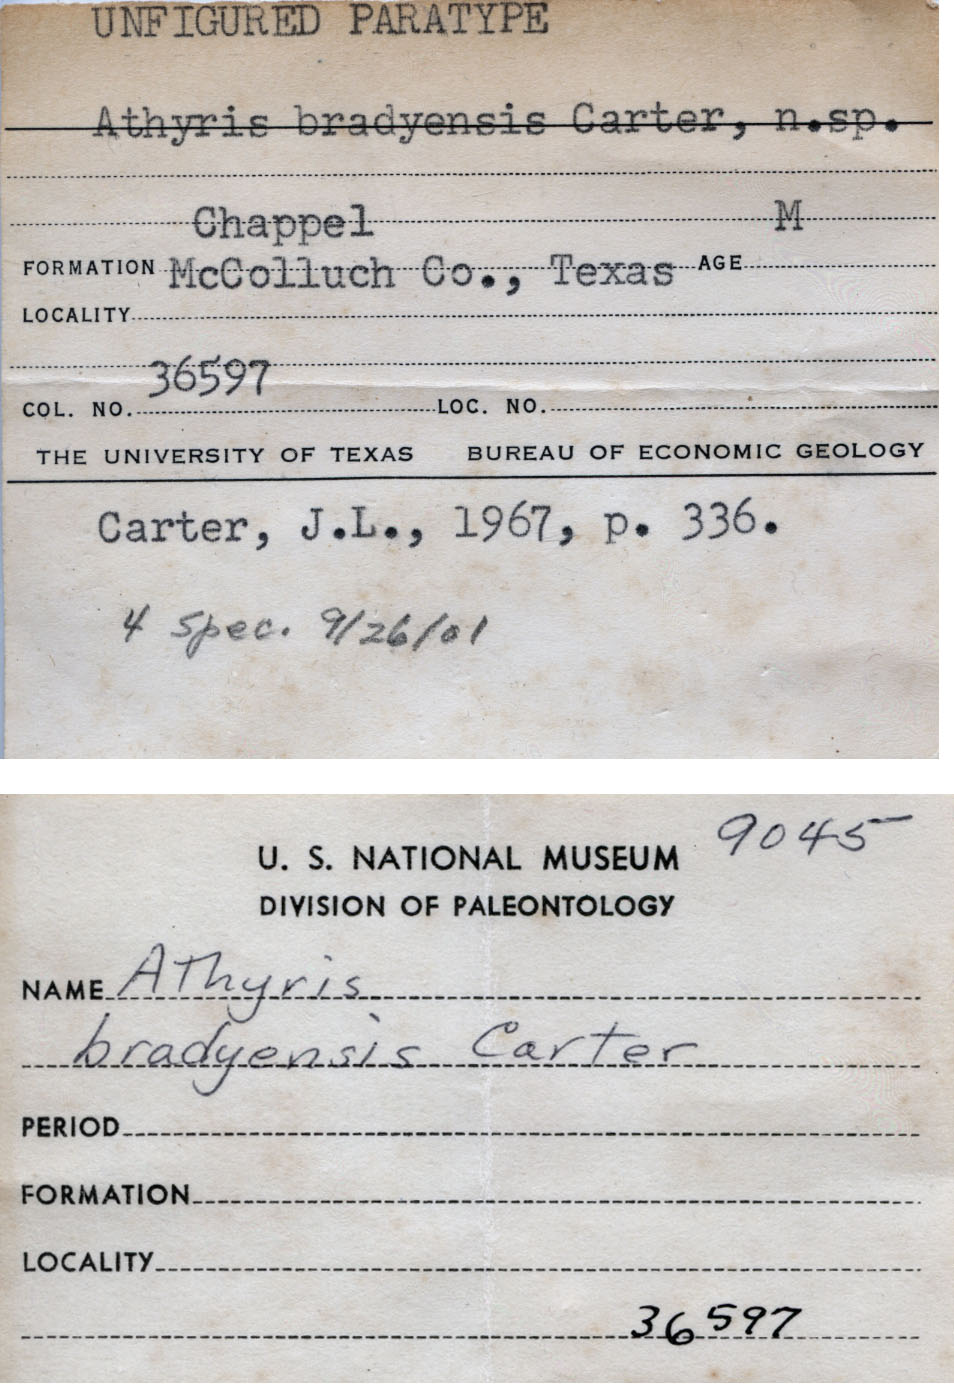 UNFIGURED PARATYPE
Athyris bradyensis Carter, n.sp.
Chappel M
FORMATION McColluch Co., Texas AGE
LOCALITY
36597
COL. NO. LOC. NO.
THE UNIVERSITY OF TEXAS BUREAU OF ECONOMIC GEOLOGY
Carter, J.L., 1967, p. 336.
4 Spec. 9/26/01
9045
U. S. NATIONAL MUSEUM
DIVISION OF PALEONTOLOGY
NAME Athyris
bradyensis Carter
PERIOD
FORMATION
LOCALITY
36597